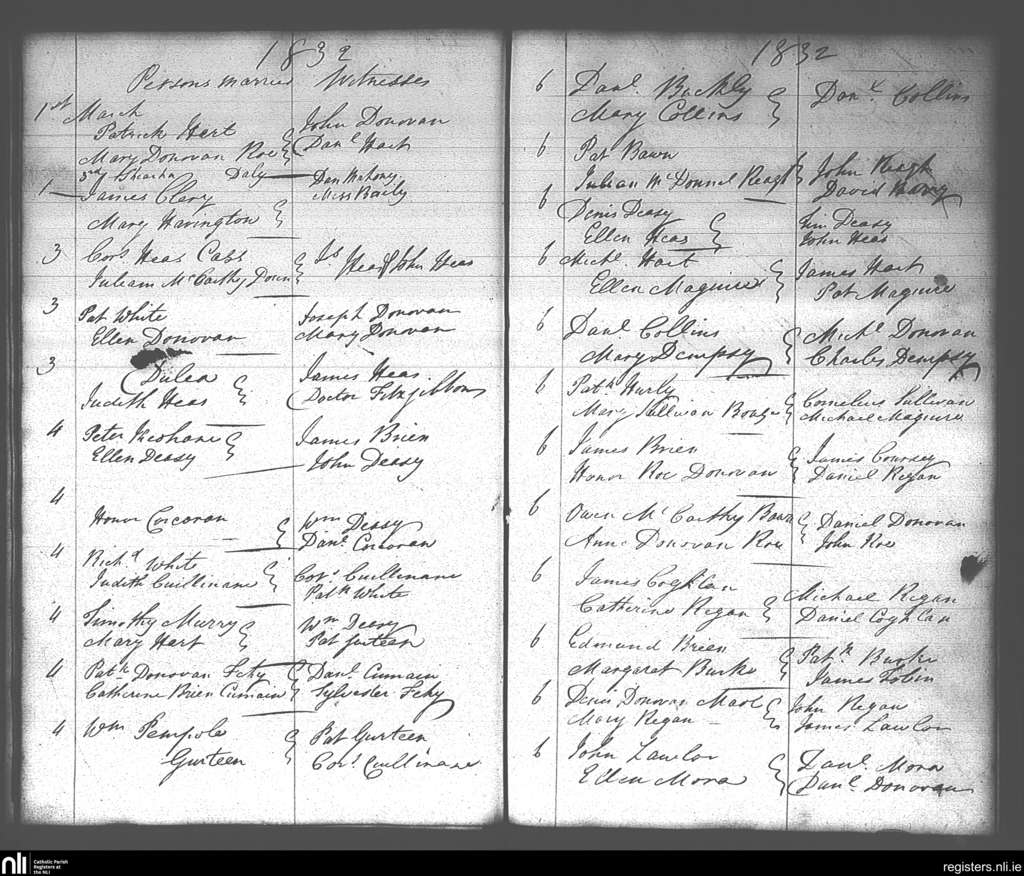 1832
Persons married Witnesses
1st March
Patrick Hart John Donovan
Mary Donovan Roe Danl Hart
3rd Daly Dan Mahony
1 James Clary Miss Baily
Mary Havington
3 Cors. Heas Cass Js Heas John Heas
Juliam McCarthy Down
3 Pat White Joseph Donovan
Ellen Donovan Mary Donovan
3 Dulea James Heas
Judith Heas Doctor Fitzgibbons
4 Peter Keohane James Brien
Ellen Deasy John Deasy
4
Honor Corcoran Wm Deasy
Danl. Corcoran
4 Richd White Cors. Cuillinane
Judith Cuillinane Patk White
4 Timothy Murry Wm Deasy
Mary Hart Pat Gurteen
4 Patk Donovan Fehy Danl. Cumain
Catherine Brien Cumain Sylvester Fehy
4 Wm Pempole Pat Gurteen
Gurteen Cors. Cuillinane
1832
6 Danl. Buckly Danl. Collins
Mary Collins
6 Pat Bawn John Keagh
Julian McDonnel Keagh David Barry
6 Denis Deasy Jim Deasy
Ellen Heas John Heas
6 Michl. Hart James Hart
Ellen Maguire Pat Maguire
6 Danl Collins Michl Donovan
Mary Dempsy Charles Dempsy
6 Patk Hurly Cornelius Sullivan
Mary Sullivan Michael Maguire
6 James Brien James Coursey
Honor Roe Donovan Daniel Regan
6 Owen McCarthy Bawn Daniel Donovan
Anne Donovan Roe John Roe
6 James Coghlan Michael Regan
Catherine Regan Daniel Coghlan
6 Edmund Brien Patk. Burke
Margaret Burke James Tobin
6 Denis Donovan Maol John Regan
Mary Regan James Lawlor
6 John Lawlor Danl. Mora
Ellen Mora Danl. Donovan
nli
Catholic Parish
Registers at
the NLI
registers.nli.ie